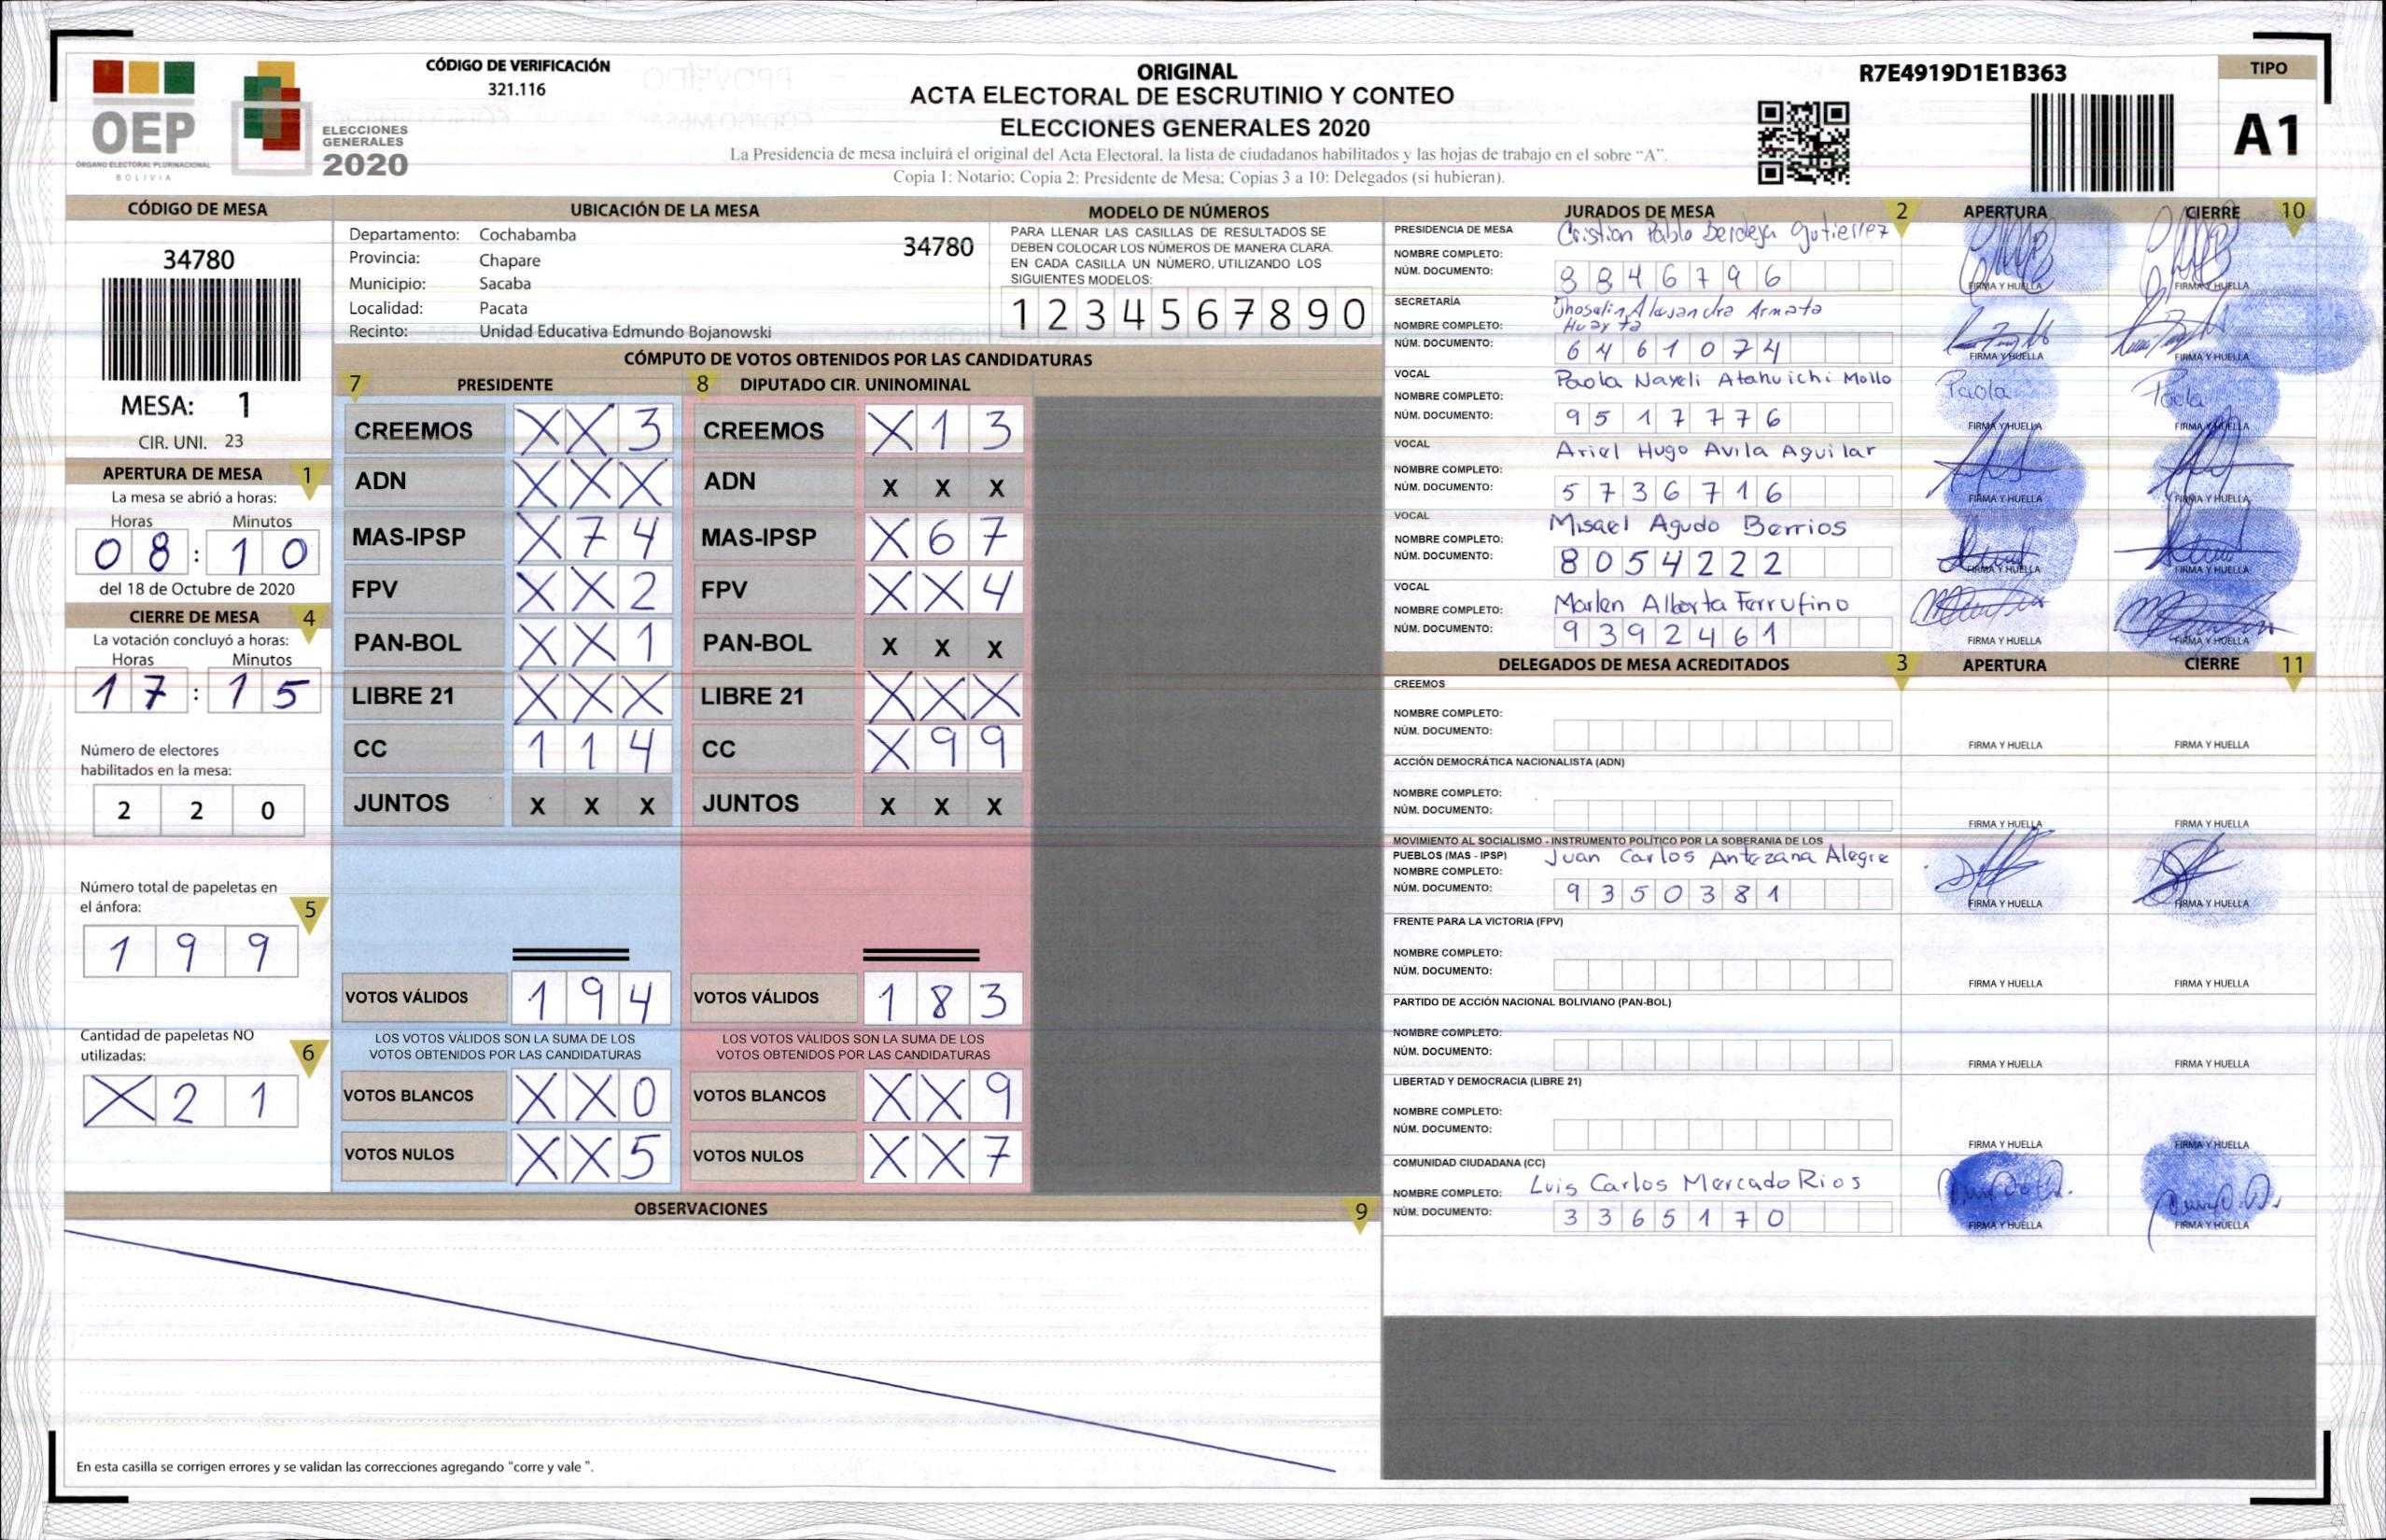 CÓDIGO DE VERIFICACIÓN
321.116
ORIGINAL
ACTA ELECTORAL DE ESCRUTINIO Y CONTEO
ELECCIONES GENERALES 2020
La Presidencia de mesa incluirá el original del Acta Electoral, la lista de ciudadanos habilitados y las hojas de trabajo en el sobre "A".
Copia 1: Notario; Copia 2: Presidente de Mesa; Copias 3 a 10: Delegados (si hubieran).
R7E4919D1E1B363
TIPO
A1
OEP
ÓRGANO ELECTORAL PLURINACIONAL
BOLIVIA
ELECCIONES
GENERALES
2020
CÓDIGO DE MESA
34780
MESA: 1
CIR. UNI. 23
APERTURA DE MESA 1
La mesa se abrió a horas:
Horas Minutos
0 8 : 1 0
del 18 de Octubre de 2020
CIERRE DE MESA 4
La votación concluyó a horas:
Horas Minutos
1 7 : 1 5
Número de electores
habilitados en la mesa:
2 2 0
Número total de papeletas en
el ánfora: 5
1 9 9
Cantidad de papeletas NO
utilizadas: 6
X 2 1
UBICACIÓN DE LA MESA
Departamento: Cochabamba
34780
Provincia: Chapare
Municipio: Sacaba
Localidad: Pacata
Recinto: Unidad Educativa Edmundo Bojanowski
MODELO DE NÚMEROS
PARA LLENAR LAS CASILLAS DE RESULTADOS SE
DEBEN COLOCAR LOS NÚMEROS DE MANERA CLARA.
EN CADA CASILLA UN NÚMERO, UTILIZANDO LOS
SIGUIENTES MODELOS:
1 2 3 4 5 6 7 8 9 0
CÓMPUTO DE VOTOS OBTENIDOS POR LAS CANDIDATURAS
7 PRESIDENTE 8 DIPUTADO CIR. UNINOMINAL
CREEMOS X X 3 CREEMOS X 1 3
ADN X X X ADN X X X
MAS-IPSP X 7 4 MAS-IPSP X 6 7
FPV X X 2 FPV X X 4
PAN-BOL X X 1 PAN-BOL X X X
LIBRE 21 X X X LIBRE 21 X X X
CC 1 1 4 CC X 9 9
JUNTOS X X X JUNTOS X X X
VOTOS VÁLIDOS 1 9 4 VOTOS VÁLIDOS 1 8 3
LOS VOTOS VÁLIDOS SON LA SUMA DE LOS LOS VOTOS VÁLIDOS SON LA SUMA DE LOS
VOTOS OBTENIDOS POR LAS CANDIDATURAS VOTOS OBTENIDOS POR LAS CANDIDATURAS
VOTOS BLANCOS X X 0 VOTOS BLANCOS X X 9
VOTOS NULOS X X 5 VOTOS NULOS X X 7
OBSERVACIONES 9
En esta casilla se corrigen errores y se validan las correcciones agregando "corre y vale ".
JURADOS DE MESA 2 APERTURA CIERRE 10
PRESIDENCIA DE MESA Cristian Pablo Berdeja Gutierrez
NOMBRE COMPLETO:
NÚM. DOCUMENTO: 8 8 4 6 7 9 6 FIRMA Y HUELLA FIRMA Y HUELLA
SECRETARÍA Jhoselin Alexandra Armata
NOMBRE COMPLETO: Huayta
NÚM. DOCUMENTO: 6 4 6 1 0 7 4 FIRMA Y HUELLA FIRMA Y HUELLA
VOCAL Paola Nayeli Atahuichi Mollo Paola Paola
NOMBRE COMPLETO:
NÚM. DOCUMENTO: 9 5 1 7 7 7 6 FIRMA Y HUELLA FIRMA Y HUELLA
VOCAL Ariel Hugo Avila Aguilar
NOMBRE COMPLETO:
NÚM. DOCUMENTO: 5 7 3 6 7 1 6 FIRMA Y HUELLA FIRMA Y HUELLA
VOCAL Misael Agudo Berrios
NOMBRE COMPLETO:
NÚM. DOCUMENTO: 8 0 5 4 2 2 2 FIRMA Y HUELLA FIRMA Y HUELLA
VOCAL
NOMBRE COMPLETO: Marlen Alberta Ferrufino
NÚM. DOCUMENTO: 9 3 9 2 4 6 1 FIRMA Y HUELLA FIRMA Y HUELLA
DELEGADOS DE MESA ACREDITADOS 3 APERTURA CIERRE 11
CREEMOS
NOMBRE COMPLETO:
NÚM. DOCUMENTO: FIRMA Y HUELLA FIRMA Y HUELLA
ACCIÓN DEMOCRÁTICA NACIONALISTA (ADN)
NOMBRE COMPLETO:
NÚM. DOCUMENTO: FIRMA Y HUELLA FIRMA Y HUELLA
MOVIMIENTO AL SOCIALISMO - INSTRUMENTO POLÍTICO POR LA SOBERANIA DE LOS
PUEBLOS (MAS - IPSP) Juan Carlos Antezana Alegre
NOMBRE COMPLETO:
NÚM. DOCUMENTO: 9 3 5 0 3 8 1 FIRMA Y HUELLA FIRMA Y HUELLA
FRENTE PARA LA VICTORIA (FPV)
NOMBRE COMPLETO:
NÚM. DOCUMENTO: FIRMA Y HUELLA FIRMA Y HUELLA
PARTIDO DE ACCIÓN NACIONAL BOLIVIANO (PAN-BOL)
NOMBRE COMPLETO:
NÚM. DOCUMENTO: FIRMA Y HUELLA FIRMA Y HUELLA
LIBERTAD Y DEMOCRACIA (LIBRE 21)
NOMBRE COMPLETO:
NÚM. DOCUMENTO: FIRMA Y HUELLA FIRMA Y HUELLA
COMUNIDAD CIUDADANA (CC)
NOMBRE COMPLETO: Luis Carlos Mercado Rios
NÚM. DOCUMENTO: 3 3 6 5 1 7 0 FIRMA Y HUELLA FIRMA Y HUELLA